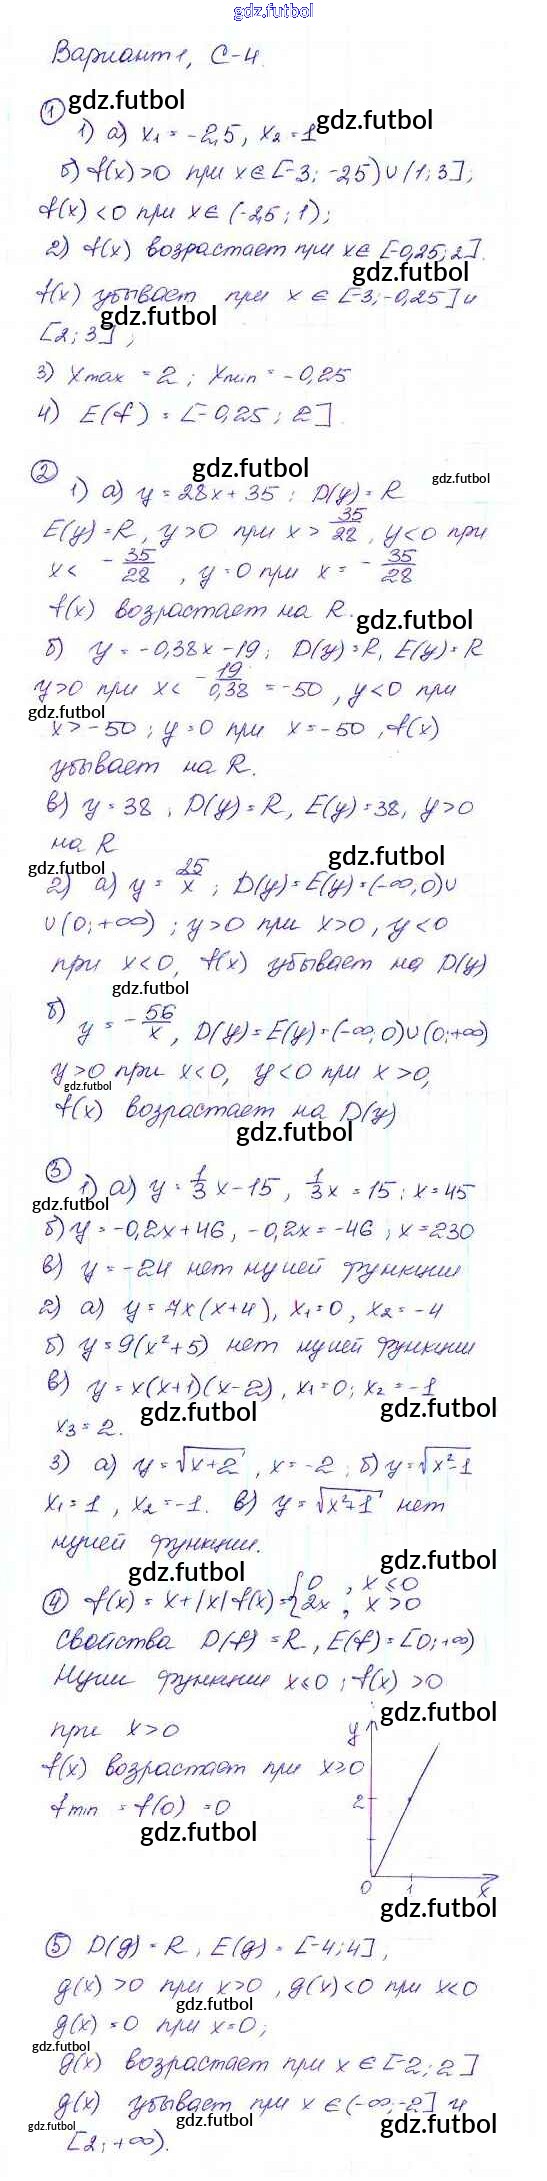 gdz.futbol
Вариант 1, С-4.
① gdz.futbol
1) а) x₁ = -2,5, x₂ = 1 gdz.futbol
б) f(x) > 0 при x ∈ [-3; -2,5) ∪ (1; 3];
f(x) < 0 при x ∈ (-2,5; 1);
2) f(x) возрастает при x ∈ [-0,25; 2].
gdz.futbol
f(x) убывает при x ∈ [-3; -0,25] и
gdz.futbol
[2; 3];
3) xmax = 2; xmin = -0,25
4) E(f) = [-0,25; 2].
② gdz.futbol gdz.futbol
1) а) y = 28x + 35; D(y) = R
E(y) = R, y > 0 при x > 35/28, y < 0 при
x < -35/28, y = 0 при x = -35/28
f(x) возрастает на R.
gdz.futbol
б) y = -0,38x - 19; D(y) = R, E(y) = R
y > 0 при x < -19/0,38 = -50, y < 0 при
gdz.futbol
x > -50; y = 0 при x = -50, f(x)
убывает на R.
в) y = 38, D(y) = R, E(y) = 38, y > 0
на R
gdz.futbol gdz.futbol
2) а) y = 25/x; D(y) = E(y) = (-∞, 0) ∪
∪ (0; +∞); y > 0 при x > 0, y < 0
при x < 0, f(x) убывает на D(y)
gdz.futbol
б) y = -56/x, D(y) = E(y) = (-∞; 0) ∪ (0; +∞)
y > 0 при x < 0, y < 0 при x > 0,
gdz.futbol
f(x) возрастает на D(y)
gdz.futbol
③
1) а) y = 1/3 x - 15, 1/3 x = 15; x = 45
gdz.futbol
б) y = -0,2x + 46, -0,2x = -46; x = 230
в) y = -24 нет нулей функции
2) а) y = 7x(x + 4), x₁ = 0, x₂ = -4
б) y = 9(x² + 5) нет нулей функции
в) y = x(x + 1)(x - 2), x₁ = 0; x₂ = -1
gdz.futbol gdz.futbol
x₃ = 2.
3) а) y = √(x+2), x = -2; б) y = √(x²-1)
x₁ = 1, x₂ = -1. в) y = √(x²+1) нет
нулей функции.
gdz.futbol gdz.futbol
④ f(x) = x + |x| f(x) = { 0, x ≤ 0
2x, x > 0
Свойства D(f) = R, E(f) = [0; +∞)
Нули функции x ≤ 0; f(x) > 0
gdz.futbol
при x > 0
y
f(x) возрастает при x ≥ 0
fmin = f(0) = 0
2
gdz.futbol
0 1 x
gdz.futbol
⑤ D(g) = R, E(g) = [-4; 4],
g(x) > 0 при x > 0, g(x) < 0 при x < 0
gdz.futbol
g(x) = 0 при x = 0;
gdz.futbol
g(x) возрастает при x ∈ [-2; 2]
g(x) убывает при x ∈ (-∞; -2] и
gdz.futbol gdz.futbol gdz.futbol
[2; +∞).